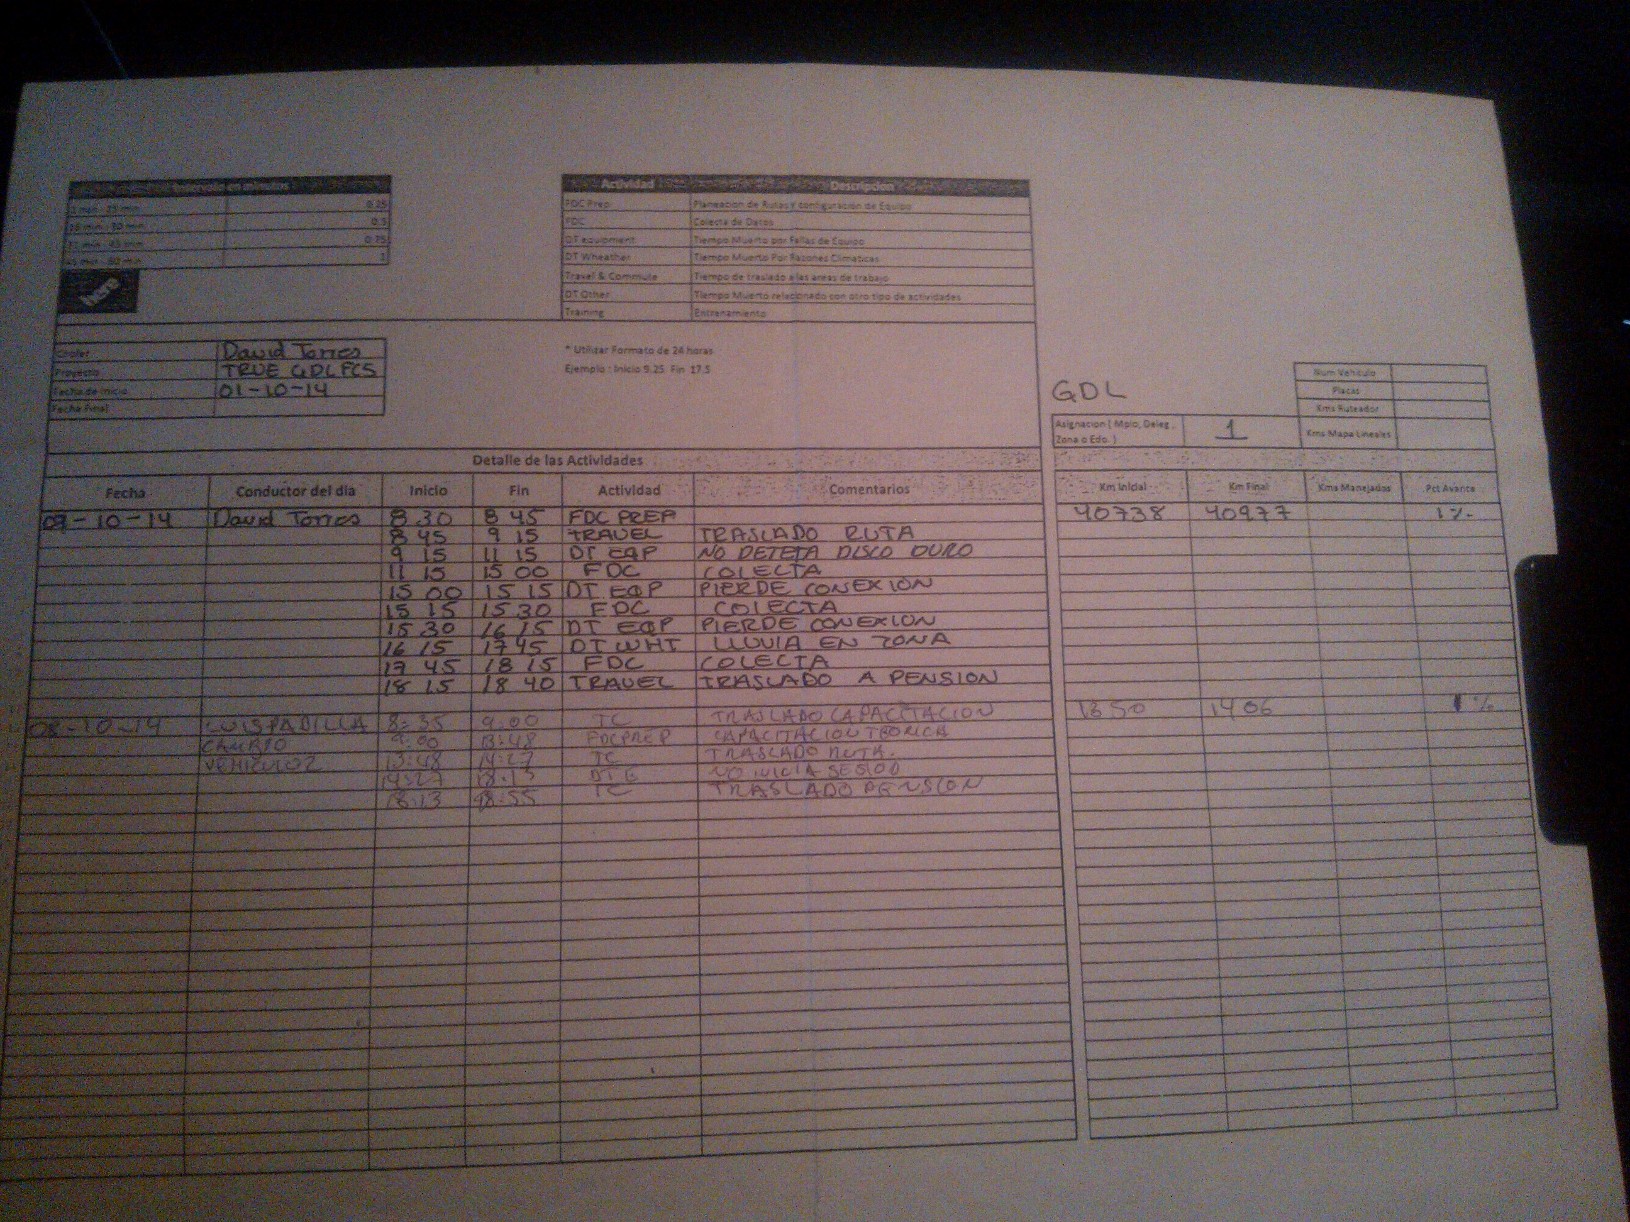 Intervalo en minutos
1 min - 15 min 0.25
16 min - 30 min 0.5
31 min - 45 min 0.75
45 min - 60 min 1
here
Actividad Descripcion
FDC Prep Planeacion de Rutas Y configuracion de Equipo
FDC Colecta de Datos
DT equipment Tiempo Muerto por Fallas de Equipo
DT Wheather Tiempo Muerto Por Razones Climaticas
Travel & Commute Tiempo de traslado a las areas de trabajo
DT Other Tiempo Muerto relacionado con otro tipo de actividades
Training Entrenamiento
Chofer David Torres
Proyecto TRUE GDL FCS
Fecha de inicio 01-10-14
Fecha Final
* Utilizar Formato de 24 horas
Ejemplo : Inicio 9.25 Fin 17.5
GDL
Asignacion ( Mpio, Deleg, Zona o Edo. ) 1
Num Vehiculo
Placas
Kms Ruteador
Kms Mapa Lineales
Detalle de las Actividades
Fecha Conductor del dia Inicio Fin Actividad Comentarios Km Inicial Km Final Kms Manejados Pct Avance
09-10-14 David Torres 8 30 8 45 FDC PREP 40738 40977 1%
8 45 9 15 TRAVEL TRASLADO RUTA
9 15 11 15 DT EQP NO DETETA DISCO DURO
11 15 15 00 FDC COLECTA
15 00 15 15 DT EQP PIERDE CONEXION
15 15 15 30 FDC COLECTA
15 30 16 15 DT EQP PIERDE CONEXION
16 15 17 45 DT WHT LLUVIA EN ZONA
17 45 18 15 FDC COLECTA
18 15 18 40 TRAVEL TRASLADO A PENSION
08-10-14 LUIS PADILLA 8:35 9:00 TC TRASLADO CAPACITACION 1350 1406 1%
CAMBIO 9:00 13:48 FDCPREP CAPACITACION TEORICA
VEHICULO 2 13:48 14:27 TC TRASLADO RUTA.
14:27 18:13 DT E NO INICIA SESION
18:13 18:55 TC TRASLADO PENSION